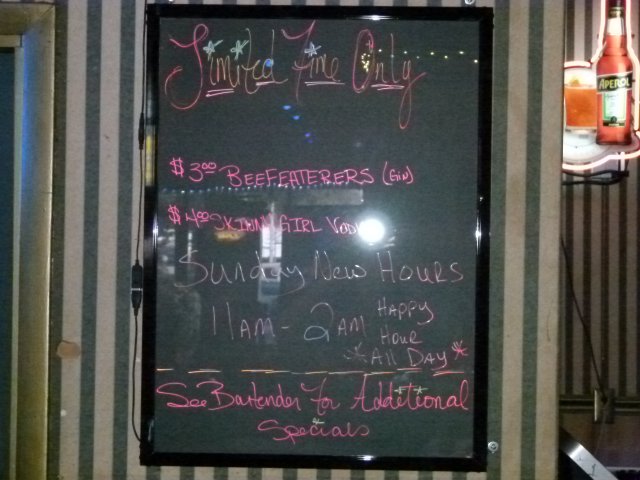 Limited Time Only
$3.00 BEEFEATERERS (GIN)
$4.00 SKINNY GIRL VOD
Sunday New Hours
11AM - 2AM HAPPY
HOUR
*ALL DAY*
See Bartender For Additional
Specials
APEROL